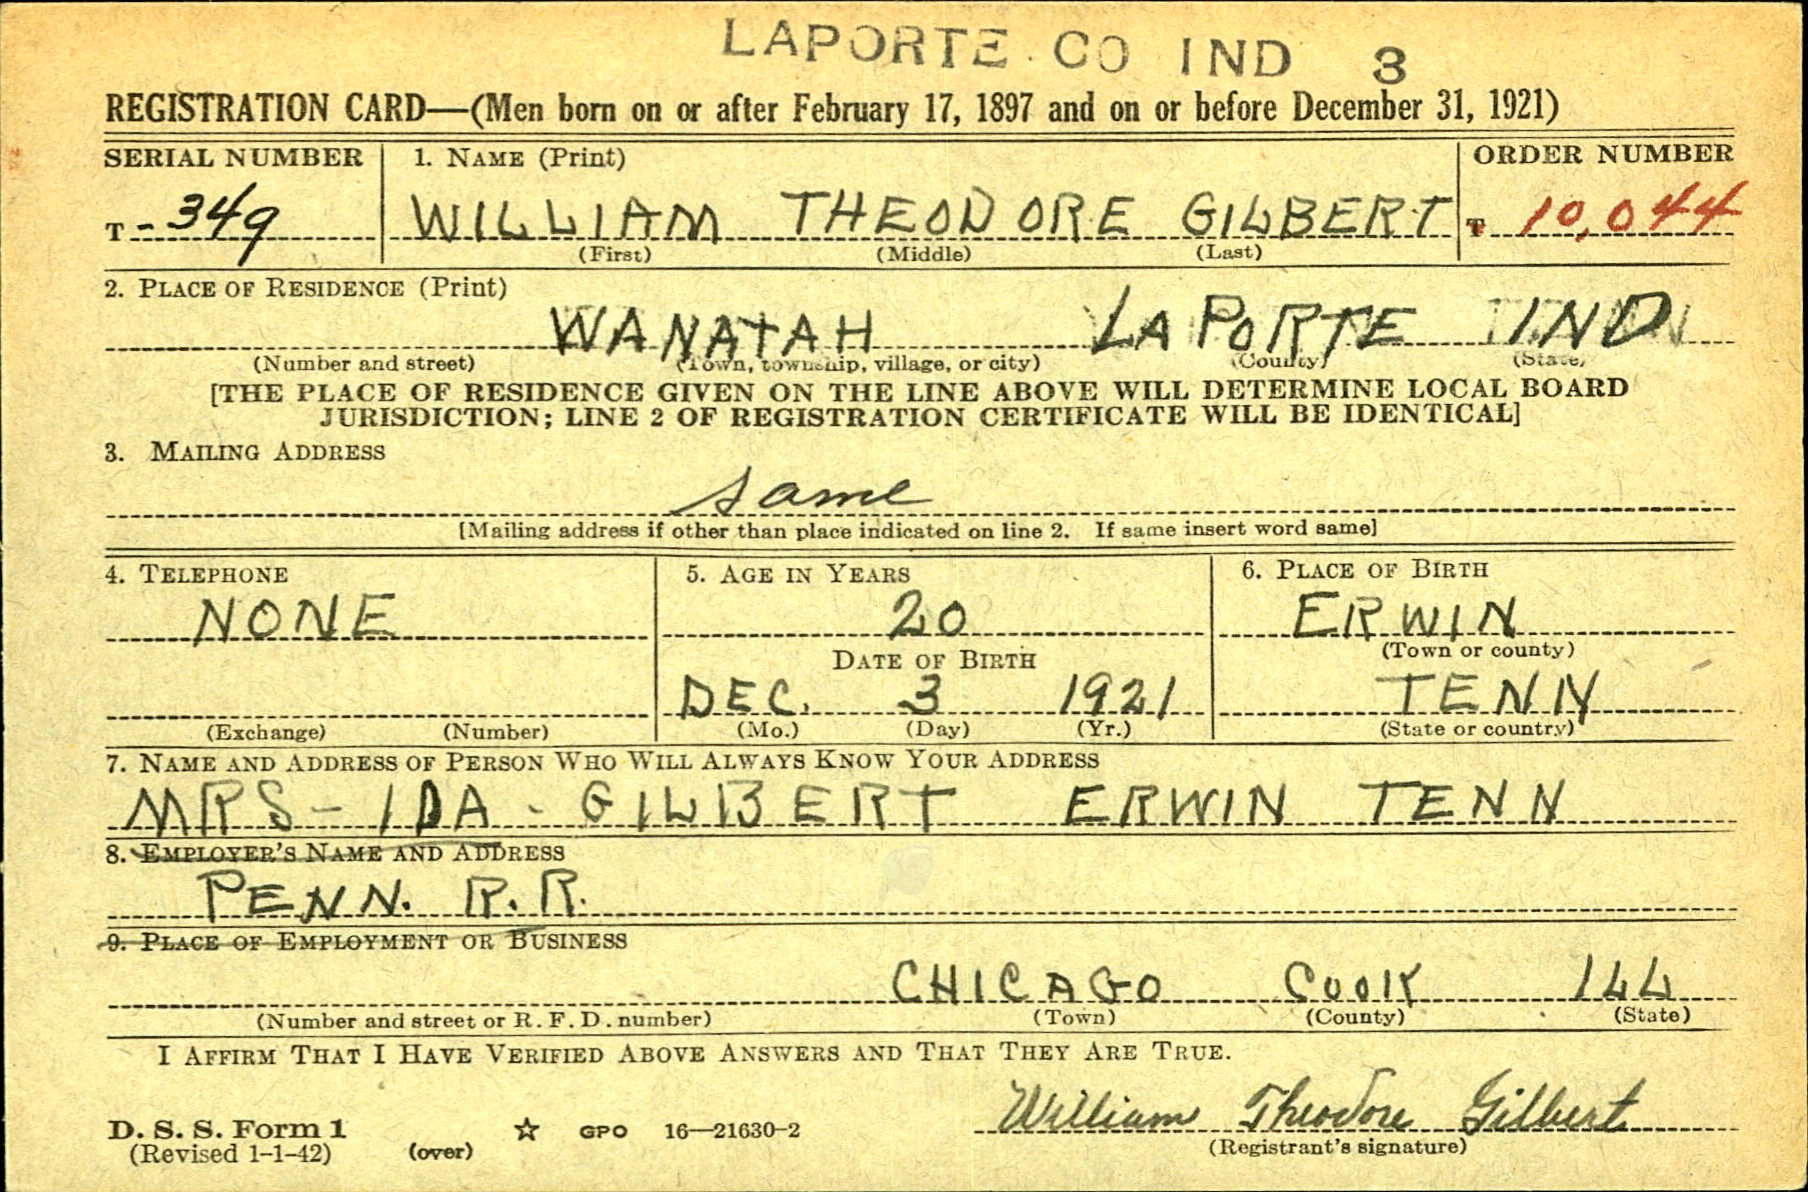 LAPORTE CO IND 3
REGISTRATION CARD—(Men born on or after February 17, 1897 and on or before December 31, 1921)
SERIAL NUMBER 1. NAME (Print) ORDER NUMBER
T - 349 WILLIAM THEODORE GILBERT T 10,044
(First) (Middle) (Last)
2. PLACE OF RESIDENCE (Print)
WANATAH LAPORTE IND
(Number and street) (Town, township, village, or city) (County) (State)
[THE PLACE OF RESIDENCE GIVEN ON THE LINE ABOVE WILL DETERMINE LOCAL BOARD
JURISDICTION; LINE 2 OF REGISTRATION CERTIFICATE WILL BE IDENTICAL]
3. MAILING ADDRESS
same
[Mailing address if other than place indicated on line 2. If same insert word same]
4. TELEPHONE 5. AGE IN YEARS 6. PLACE OF BIRTH
NONE 20 ERWIN
(Town or county)
DATE OF BIRTH
DEC. 3 1921 TENN
(Exchange) (Number) (Mo.) (Day) (Yr.) (State or country)
7. NAME AND ADDRESS OF PERSON WHO WILL ALWAYS KNOW YOUR ADDRESS
MRS - IDA - GILBERT ERWIN TENN
8. EMPLOYER'S NAME AND ADDRESS
PENN. R.R.
9. PLACE OF EMPLOYMENT OR BUSINESS
CHICAGO COOK ILL
(Number and street or R. F. D. number) (Town) (County) (State)
I AFFIRM THAT I HAVE VERIFIED ABOVE ANSWERS AND THAT THEY ARE TRUE.
William Theodore Gilbert
D. S. S. Form 1 ☆ GPO 16—21630-2
(Revised 1-1-42) (over) (Registrant's signature)